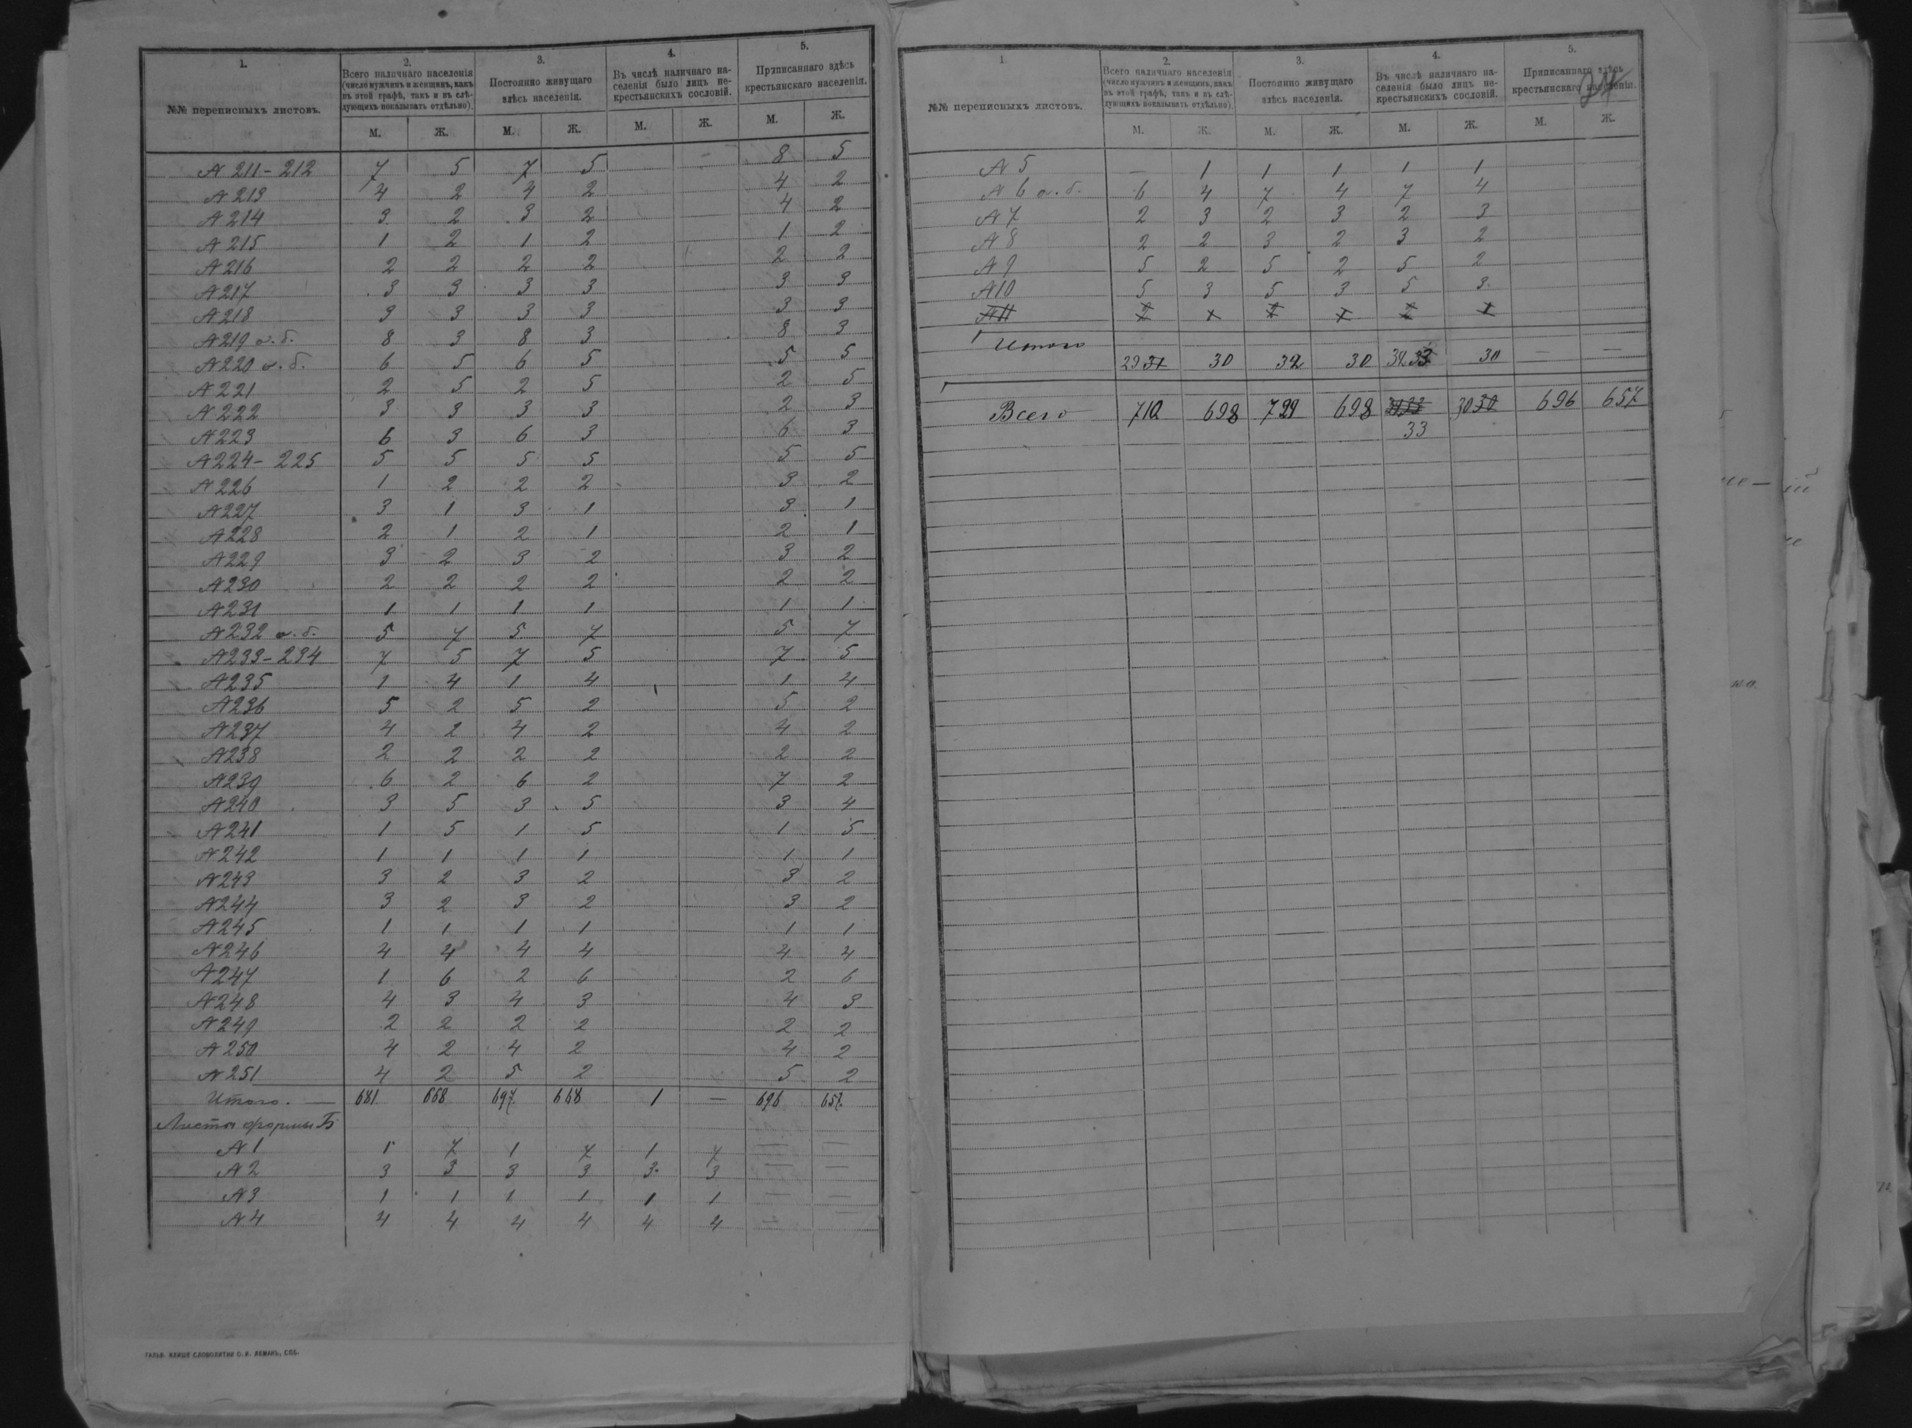 1. 2. 3. 4. 5.
№№ переписныхъ листовъ. Всего наличнаго населенія (число мужчинъ и женщинъ, какъ въ этой графѣ, такъ и въ слѣдующихъ показывать отдѣльно). Постоянно живущаго здѣсь населенія. Въ числѣ наличнаго населенія было лицъ некрестьянскихъ сословій. Приписаннаго здѣсь крестьянскаго населенія.
М. Ж. М. Ж. М. Ж. М. Ж.
№ 211-212 7 5 7 5 - 8 5
№ 213 4 2 4 2 4 2
№ 214 3 2 3 2 4 2
№ 215 1 2 1 2 1 2
№ 216 2 2 2 2 2 2
№ 217 3 3 3 3 3 3
№ 218 3 3 3 3 3 3
№ 219 а.б. 8 3 8 3 8 3
№ 220 а.б. 6 5 6 5 5 5
№ 221 2 5 2 5 2 5
№ 222 3 3 3 3 2 3
№ 223 6 3 6 3 6 3
№ 224-225 5 5 5 5 5 5
№ 226 1 2 2 2 3 2
№ 227 3 1 3 1 3 1
№ 228 2 1 2 1 2 1
№ 229 3 2 3 2 3 2
№ 230 2 2 2 2 2 2
№ 231 1 1 1 1 1 1
№ 232 а.б. 5 7 5 7 5 7
№ 233-234 7 5 7 5 7 5
№ 235 1 4 1 4 1 4
№ 236 5 2 5 2 5 2
№ 237 4 2 4 2 4 2
№ 238 2 2 2 2 2 2
№ 239 6 2 6 2 7 2
№ 240 3 5 3 5 3 4
№ 241 1 5 1 5 1 5
№ 242 1 1 1 1 1 1
№ 243 3 2 3 2 3 2
№ 244 3 2 3 2 3 2
№ 245 1 1 1 1 1 1
№ 246 4 4 4 4 4 4
№ 247 1 6 2 6 2 6
№ 248 4 3 4 3 4 3
№ 249 2 2 2 2 2 2
№ 250 4 2 4 2 4 2
№ 251 4 2 5 2 5 2
Итого. — 681 668 697 668 1 — 696 657
Листы формы Б
№ 1 1 7 1 7 1 7 — —
№ 2 3 3 3 3 3 3 — —
№ 3 1 1 1 1 1 1 — —
№ 4 4 4 4 4 4 4
1. 2. 3. 4. 5.
№№ переписныхъ листовъ. Всего наличнаго населенія (число мужчинъ и женщинъ, какъ въ этой графѣ, такъ и въ слѣдующихъ показывать отдѣльно). Постоянно живущаго здѣсь населенія. Въ числѣ наличнаго населенія было лицъ некрестьянскихъ сословій. Приписаннаго здѣсь крестьянскаго населенія.
М. Ж. М. Ж. М. Ж. М. Ж.
№ 5 — 1 1 1 1 1
№ 6 а.б. 6 4 7 4 7 4
№ 7 2 3 2 3 2 3
№ 8 2 2 3 2 3 2
№ 9 5 2 5 2 5 2
№ 10 5 3 5 3 5 3
№ 11
Итого 30 32 30 30 — —
Всего 710 698 729 698 30 696 657
33